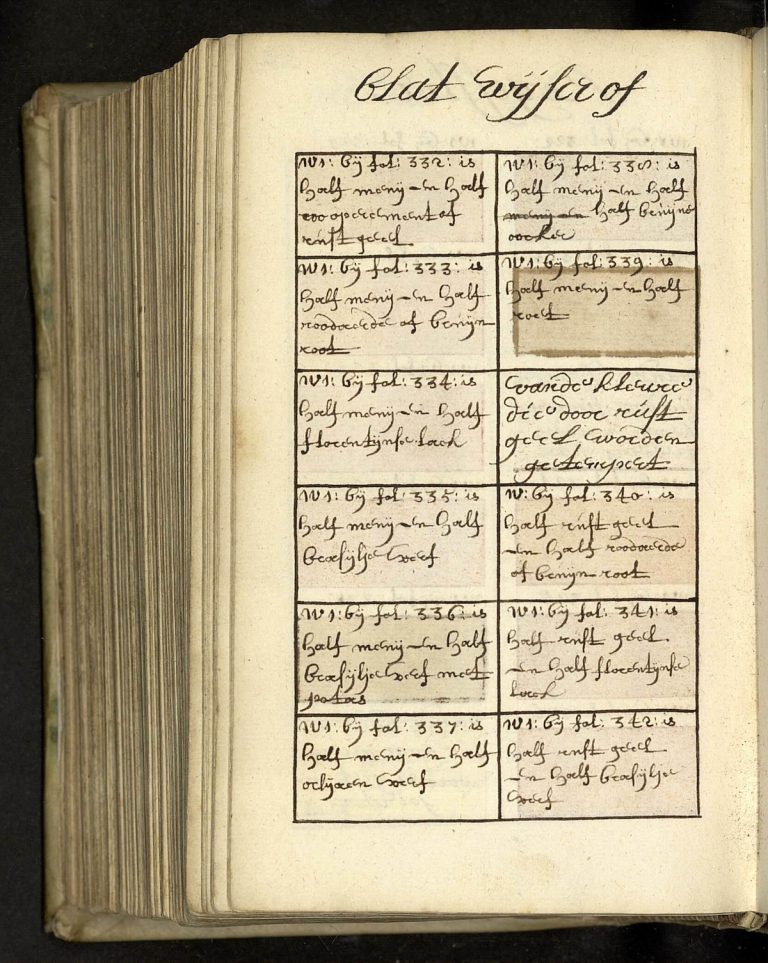 Blat wijser of
W1: bij fol: 332: is
half menij en half
roo operement of
rust geel
W1: bij fol: 333: is
half menij en half
roodaerde of benijn
root
W1: bij fol: 334: is
half menij en half
florentijnse lack
W1: bij fol: 335: is
half menij en half
brasijlje verf
W1: bij fol: 336: is
half menij en half
brasijlje verf met
potas
W1: bij fol: 337: is
half menij en half
orlijaen verf
W1: bij fol: 338: is
half menij en half
menij en half benijne
oocker
W1: bij fol: 339: is
half menij en half
roet
vande kleure
die door rust
geel worden
getempert
W: bij fol: 340: is
half rust geel
en half roodaerde
of benijn root
W1: bij fol: 341: is
half rust geel
en half florentijnse
lack
W1: bij fol: 342: is
half rust geel
en half brasijlje
verf